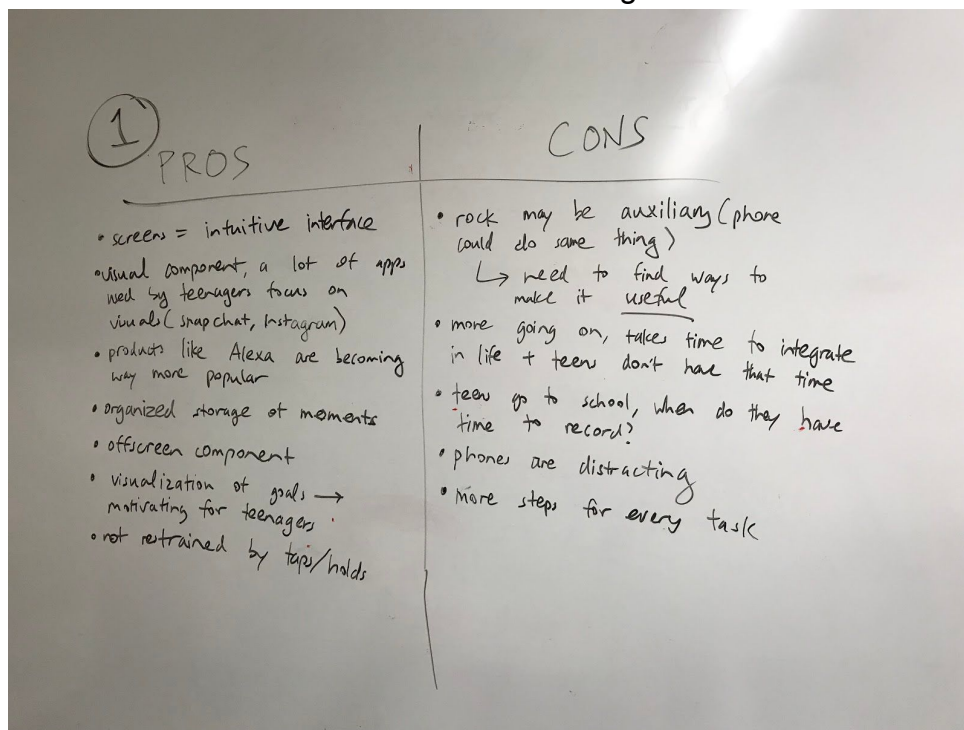 1
PROS
• screens = intuitive interface
• visual component, a lot of apps
used by teenagers focus on
visuals (snapchat, Instagram)
• products like Alexa are becoming
way more popular
• organized storage of moments
• offscreen component
• visualization of goals →
motivating for teenagers
• not restrained by taps/holds
CONS
• rock may be auxiliary (phone
could do same thing)
↳ need to find ways to
make it useful
• more going on, takes time to integrate
in life + teens don't have that time
• teens go to school, when do they have
time to record?
• phones are distracting
• more steps for every task